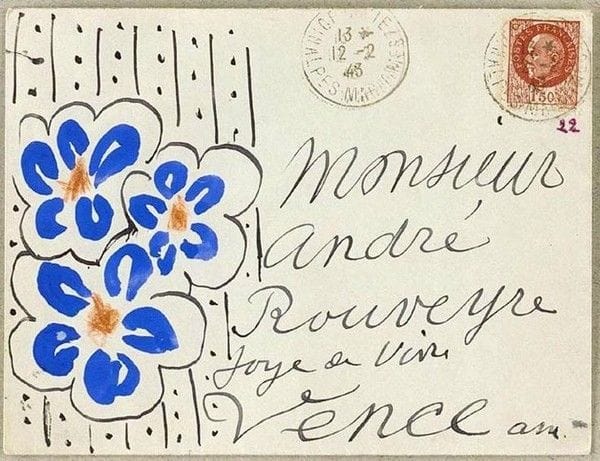 13 *
12 -2
43
POSTES FRANÇAISES
1F50
22
Monsieur
André
Rouveyre
Joye de Vivre
Vence a.m.